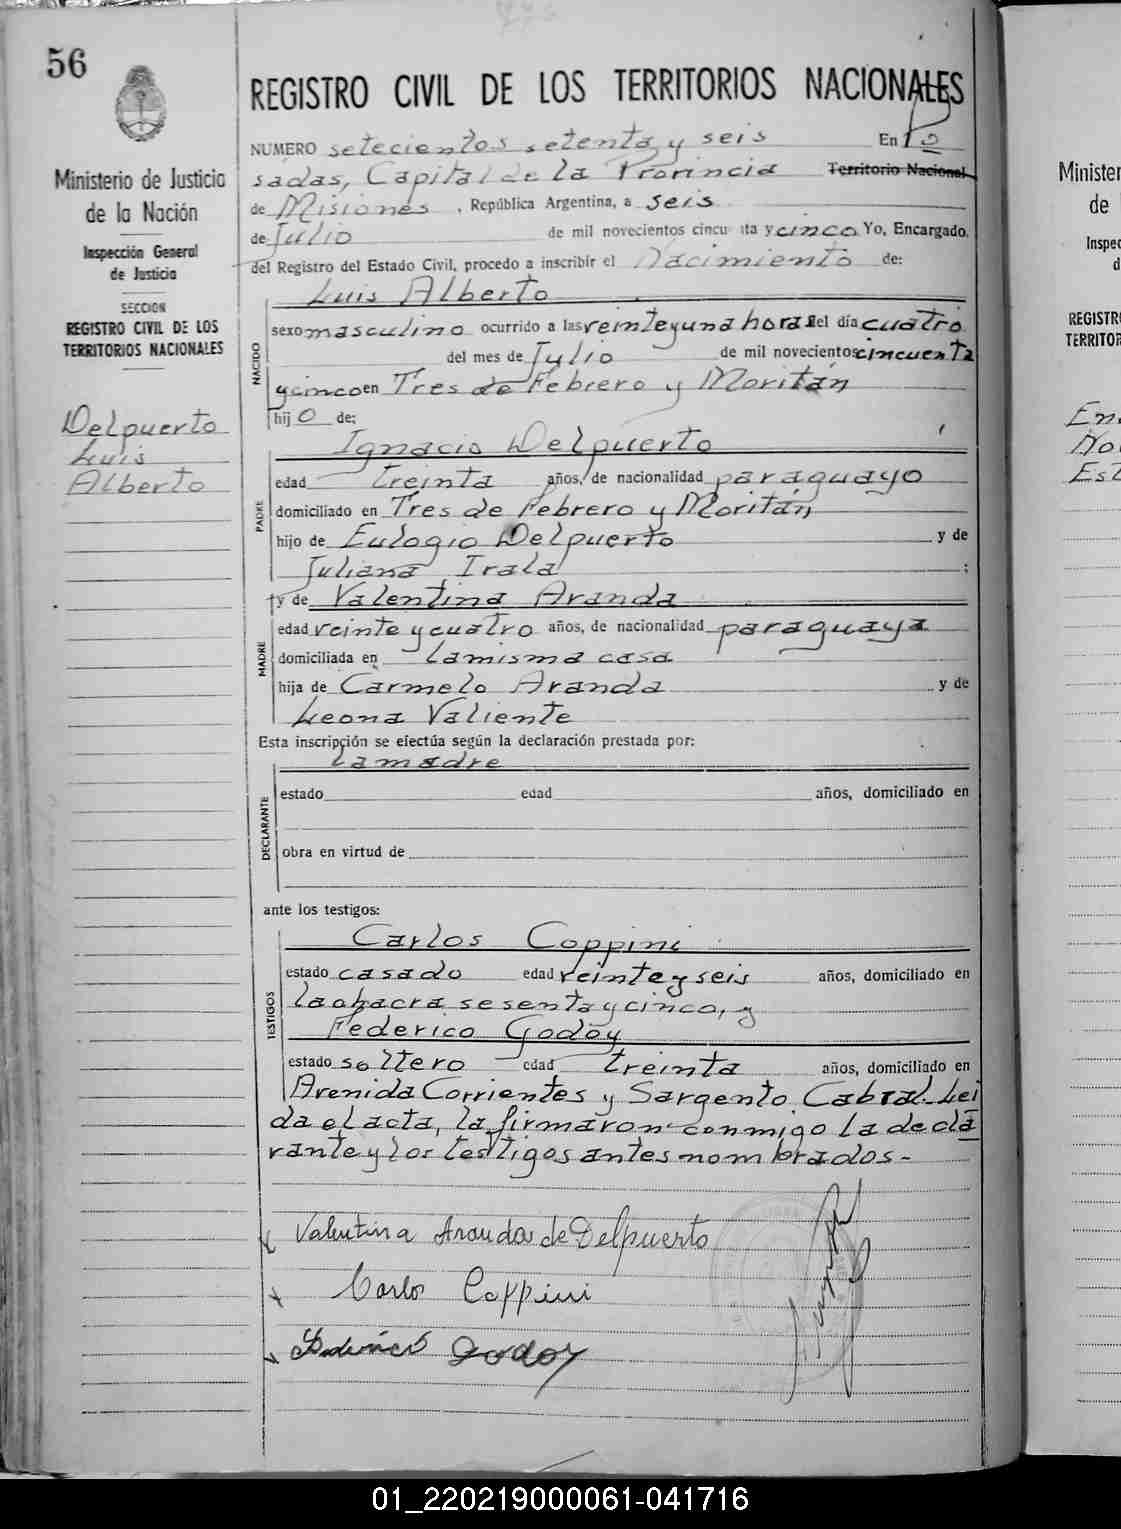 56
Ministerio de Justicia
de la Nación
Inspección General
de Justicia
SECCION
REGISTRO CIVIL DE LOS
TERRITORIOS NACIONALES
Delpuerto
Luis
Alberto
REGISTRO CIVIL DE LOS TERRITORIOS NACIONALES
NUMERO setecientos setenta y seis En Po
sadas, Capital de la Provincia Territorio Nacional
de Misiones, República Argentina, a seis
de Julio de mil novecientos cincuenta y cinco Yo, Encargado
del Registro del Estado Civil, procedo a inscribir el Nacimiento de:
NACIDO
Luis Alberto
sexo masculino ocurrido a las veinte y una horas del día cuatro
del mes de Julio de mil novecientos cincuenta
y cinco en Tres de Febrero y Moritán
hijo de:
PADRE
Ignacio Delpuerto
edad treinta años, de nacionalidad paraguayo
domiciliado en Tres de Febrero y Moritán
hijo de Eulogio Delpuerto y de
Juliana Irala ;
MADRE
y de Valentina Aranda
edad veinte y cuatro años, de nacionalidad paraguaya
domiciliada en la misma casa
hija de Carmelo Aranda y de
Leona Valiente
Esta inscripción se efectúa según la declaración prestada por:
DECLARANTE
la madre
estado edad años, domiciliado en
obra en virtud de
ante los testigos:
TESTIGOS
Carlos Coppini
estado casado edad veinte y seis años, domiciliado en
la chacra sesenta y cinco, y
Federico Godoy
estado soltero edad treinta años, domiciliado en
Avenida Corrientes y Sargento Cabral. Lei
da el acta, la firmaron conmigo la decla
rante y los testigos antes nombrados-
Valentina Aranda de Delpuerto
Carlos Coppini
Federico Godoy
Minister
de
Inspec
d
REGISTR
TERRITOR
En
No
Est
01_220219000061-041716